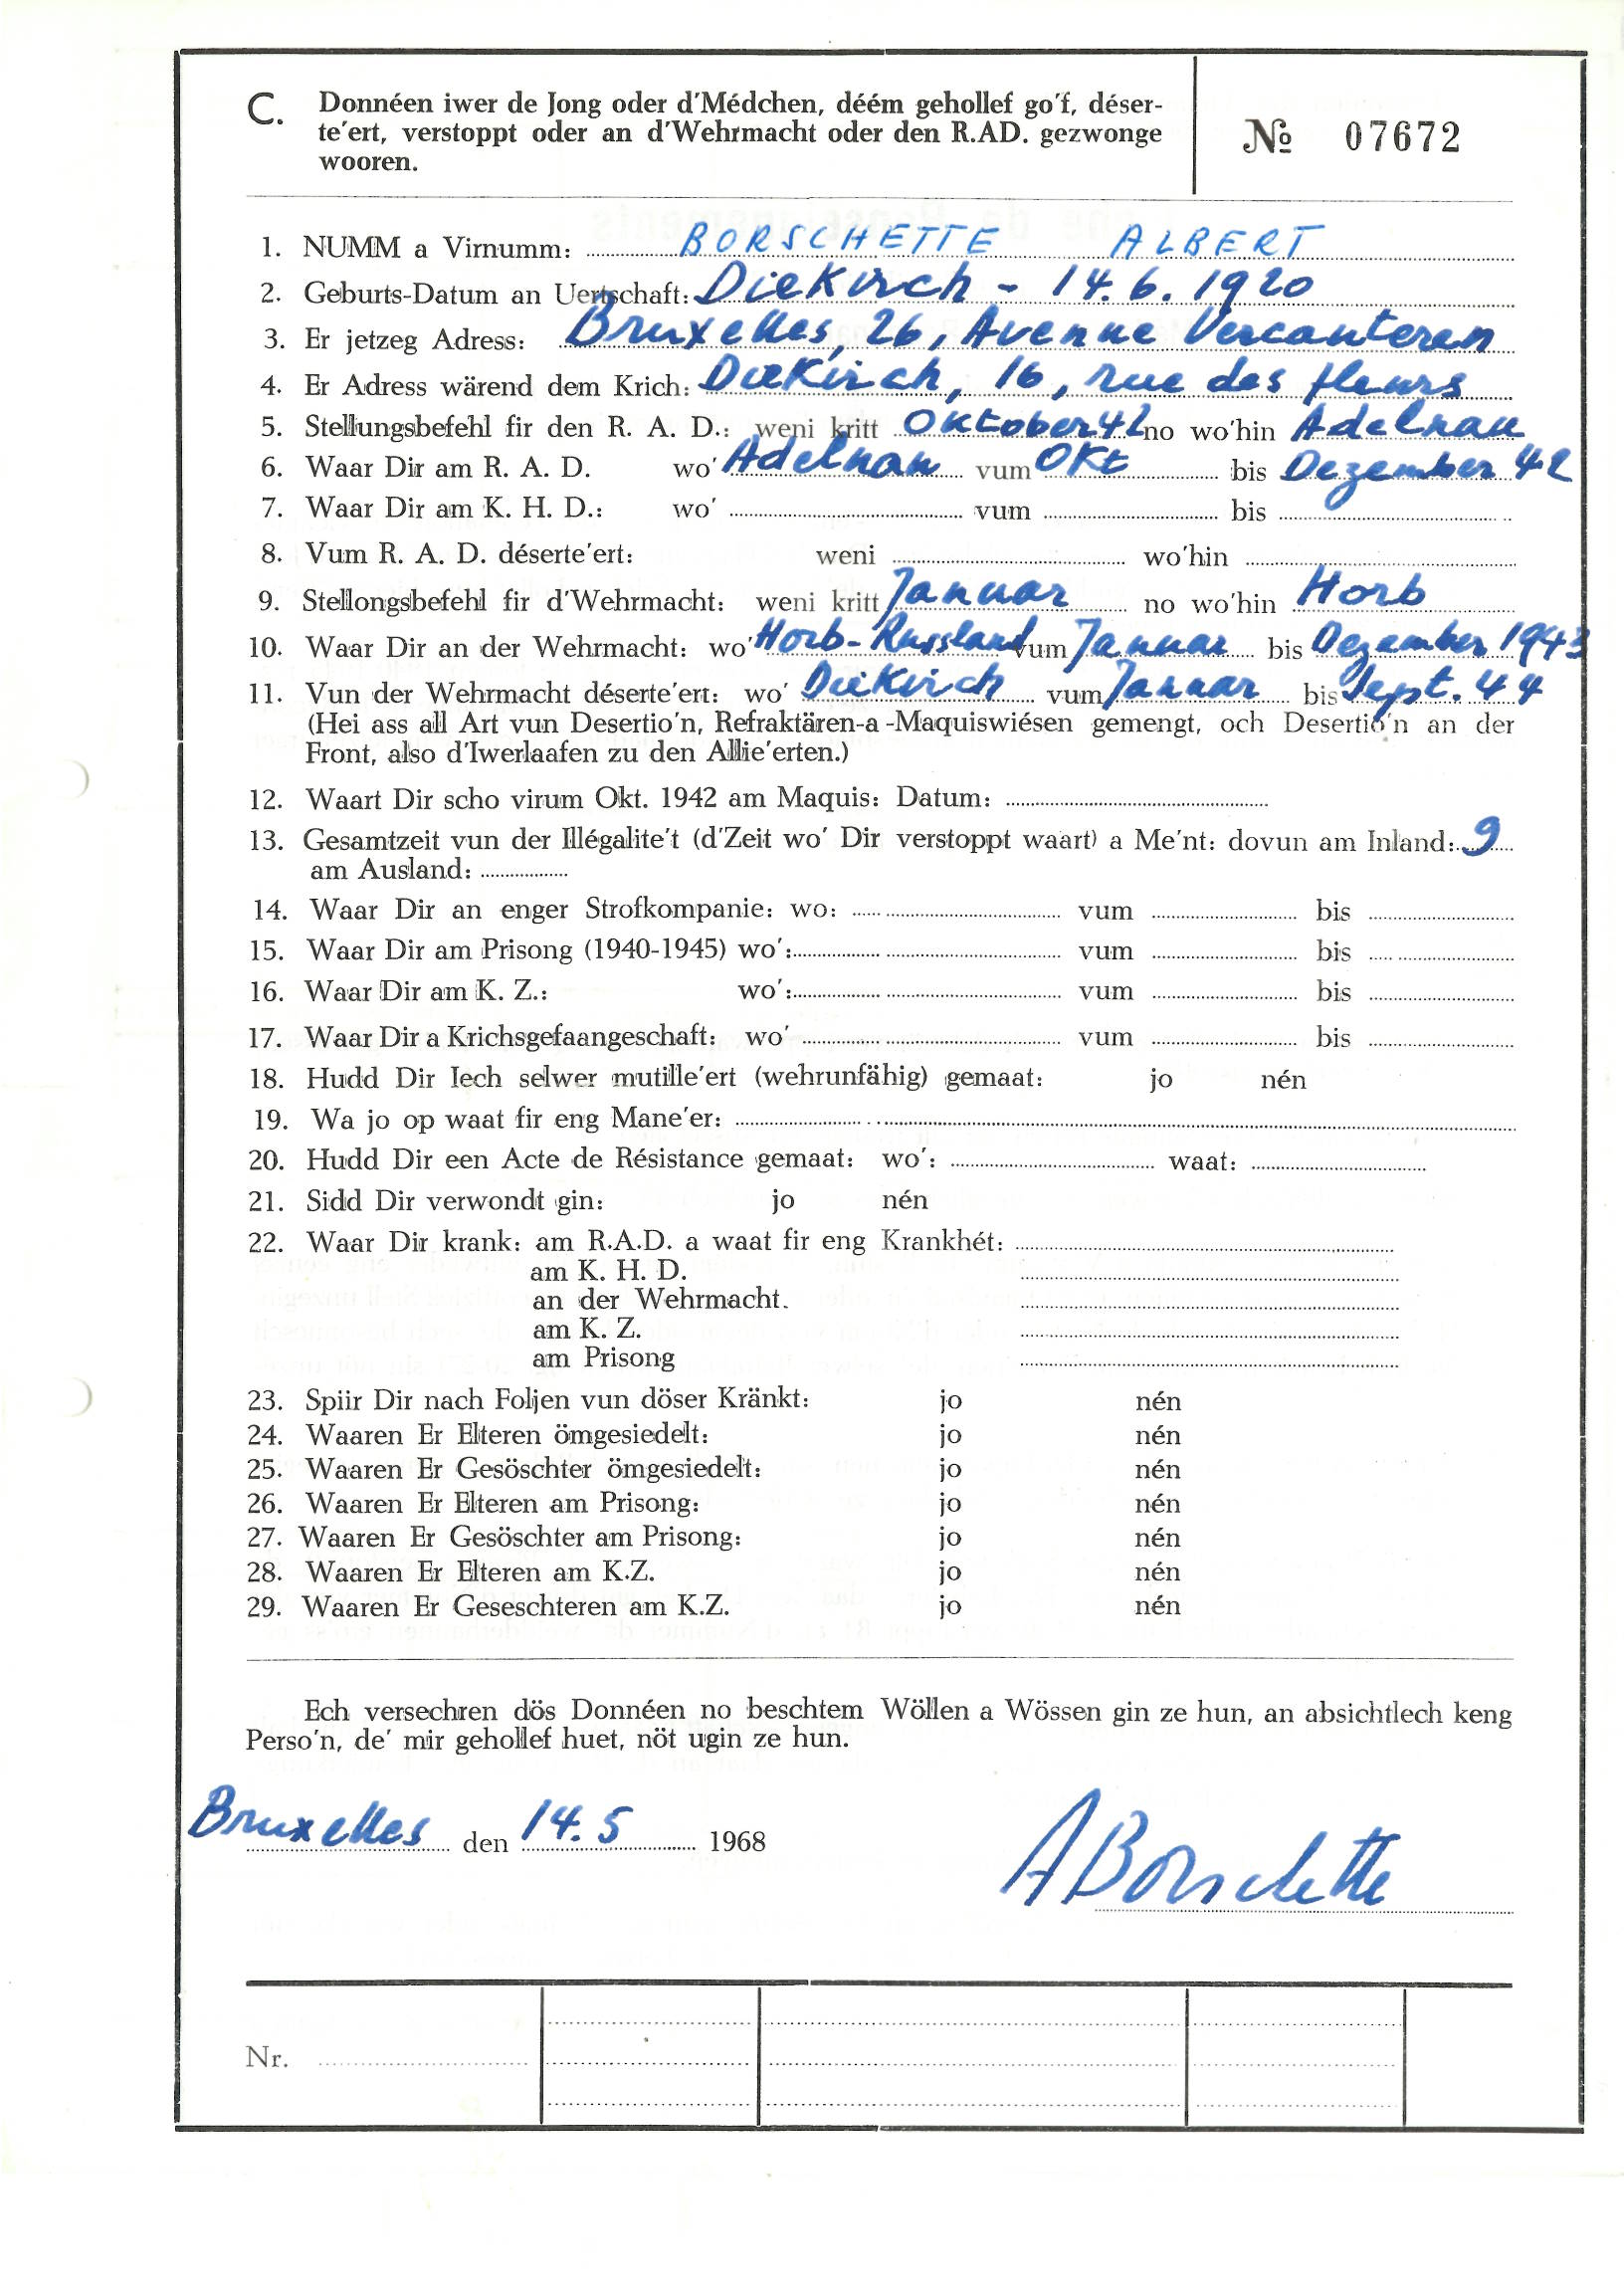 C. Donnéen iwer de Jong oder d'Médchen, déém gehollef go'f, déser-
te'ert, verstoppt oder an d'Wehrmacht oder den R.AD. gezwonge
wooren.
№ 07672
1. NUMM a Virnumm: BORSCHETTE ALBERT
2. Geburts-Datum an Uertschaft: Diekirch - 14.6.1920
3. Er jetzeg Adress: Bruxelles, 26, Avenue Vercauteren
4. Er Adress wärend dem Krich: Diekirch, 16, rue des fleurs
5. Stellungsbefehl fir den R. A. D.: weni kritt Oktober 42 no wo'hin Adelnau
6. Waar Dir am R. A. D. wo' Adelnau vum Okt bis Dezember 42
7. Waar Dir am K. H. D.: wo' vum bis
8. Vum R. A. D. déserte'ert: weni wo'hin
9. Stellongsbefehl fir d'Wehrmacht: weni kritt Januar no wo'hin Horb
10. Waar Dir an der Wehrmacht: wo' Horb-Russland vum Januar bis Dezember 1943
11. Vun der Wehrmacht déserte'ert: wo' Diekirch vum Januar bis Sept. 44
(Hei ass all Art vun Desertio'n, Refraktären-a-Maquiswiésen gemengt, och Desertio'n an der
Front, also d'Iwerlaafen zu den Allie'erten.)
12. Waart Dir scho virum Okt. 1942 am Maquis: Datum:
13. Gesamtzeit vun der Illégalite't (d'Zeit wo' Dir verstoppt waart) a Me'nt: dovun am Inland: 9
am Ausland:
14. Waar Dir an enger Strofkompanie: wo: vum bis
15. Waar Dir am Prisong (1940-1945) wo': vum bis
16. Waar Dir am K. Z.: wo': vum bis
17. Waar Dir a Krichsgefaangeschaft: wo' vum bis
18. Hudd Dir Iech selwer mutille'ert (wehrunfähig) gemaat: jo nén
19. Wa jo op waat fir eng Mane'er:
20. Hudd Dir een Acte de Résistance gemaat: wo': waat:
21. Sidd Dir verwondt gin: jo nén
22. Waar Dir krank: am R.A.D. a waat fir eng Krankhét:
am K. H. D.
an der Wehrmacht.
am K. Z.
am Prisong
23. Spiir Dir nach Foljen vun döser Kränkt: jo nén
24. Waaren Er Elteren ömgesiedelt: jo nén
25. Waaren Er Gesöschter ömgesiedelt: jo nén
26. Waaren Er Elteren am Prisong: jo nén
27. Waaren Er Gesöschter am Prisong: jo nén
28. Waaren Er Elteren am K.Z. jo nén
29. Waaren Er Geseschteren am K.Z. jo nén
Ech versechren dös Donnéen no beschtem Wöllen a Wössen gin ze hun, an absichtlech keng
Perso'n, de' mir gehollef huet, nöt ugin ze hun.
Bruxelles den 14.5 1968
ABorschette
Nr.